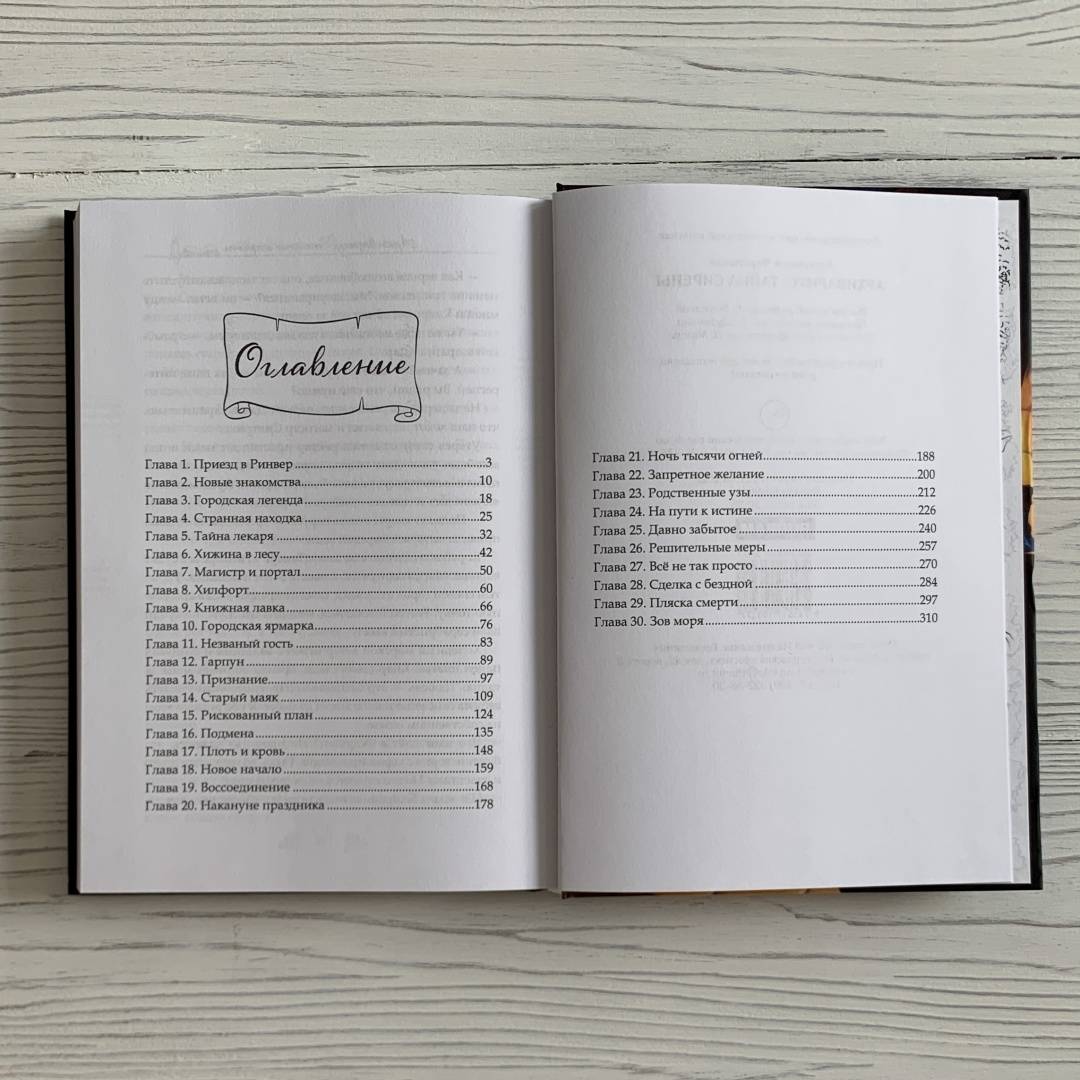 Оглавление
Глава 1. Приезд в Ринвер.....3
Глава 2. Новые знакомства.....10
Глава 3. Городская легенда.....18
Глава 4. Странная находка.....25
Глава 5. Тайна лекаря.....32
Глава 6. Хижина в лесу.....42
Глава 7. Магистр и портал.....50
Глава 8. Хилфорт.....60
Глава 9. Книжная лавка.....66
Глава 10. Городская ярмарка.....76
Глава 11. Незваный гость.....83
Глава 12. Гарпун.....89
Глава 13. Признание.....97
Глава 14. Старый маяк.....109
Глава 15. Рискованный план.....124
Глава 16. Подмена.....135
Глава 17. Плоть и кровь.....148
Глава 18. Новое начало.....159
Глава 19. Воссоединение.....168
Глава 20. Накануне праздника.....178
Глава 21. Ночь тысячи огней.....188
Глава 22. Запретное желание.....200
Глава 23. Родственные узы.....212
Глава 24. На пути к истине.....226
Глава 25. Давно забытое.....240
Глава 26. Решительные меры.....257
Глава 27. Всё не так просто.....270
Глава 28. Сделка с бездной.....284
Глава 29. Пляска смерти.....297
Глава 30. Зов моря.....310